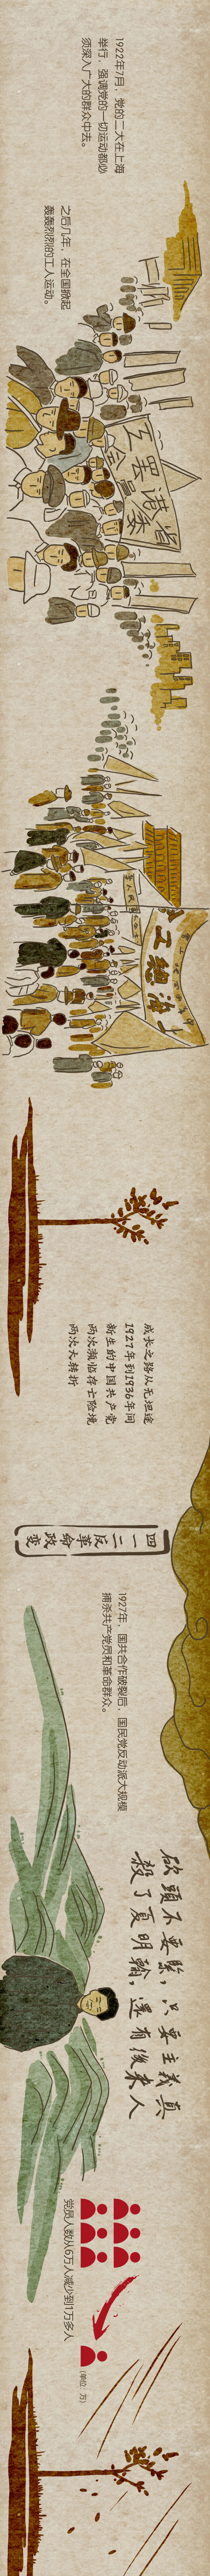 1922年7月，党的二大在上海
举行，强调党的一切运动都必
须深入广大的群众中去。
之后几年，在全国掀起
轰轰烈烈的工人运动。
省港罷工
委員會
上海總工
成长之路从无坦途
1927年到1936年间
新生的中国共产党
两次濒临存亡险境
两次大转折
四一二反革命政变
1927年，国共合作破裂后，国民党反动派大规模
捕杀共产党员和革命群众。
砍頭不要緊，只要主義真
殺了夏明翰，還有後來人
党员人数从6万人减少到1万多人
(单位：万)